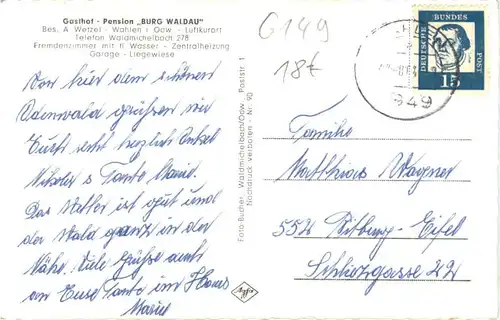 Gasthof - Pension „BURG WALDAU"
Bes. A. Wetzel - Wahlen i. Odw. - Luftkurort
Telefon Waldmichelbach 278
Fremdenzimmer mit fl. Wasser - Zentralheizung
Garage - Liegewiese
Von hier dem schönen
Odenwald grüßen wir
Euch recht herzlich Onkel
Nikola s Tante Mariel.
Das Wetter ist gut und
der Wald ganz in der
Nähe. Viele Grüße auch
an Eure Tante im Haus
Mariel
Foto-Bucher, Waldmichelbach/Odw. Postfst. 1
Nachdruck verboten - Nr. 90
Agfa
G149
18€
949
DEUTSCHE
BUNDES
POST
15
Familie
Matthias Wagner
552 Bitburg-Eifel
Schlossgasse 22